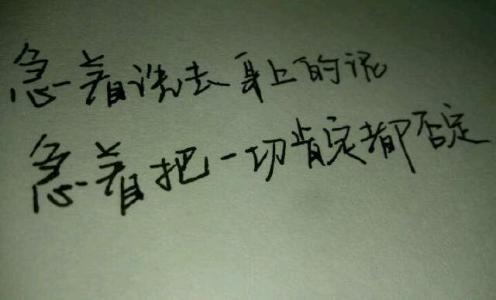 急着洗去身上的泥
急着把一切肯定都否定